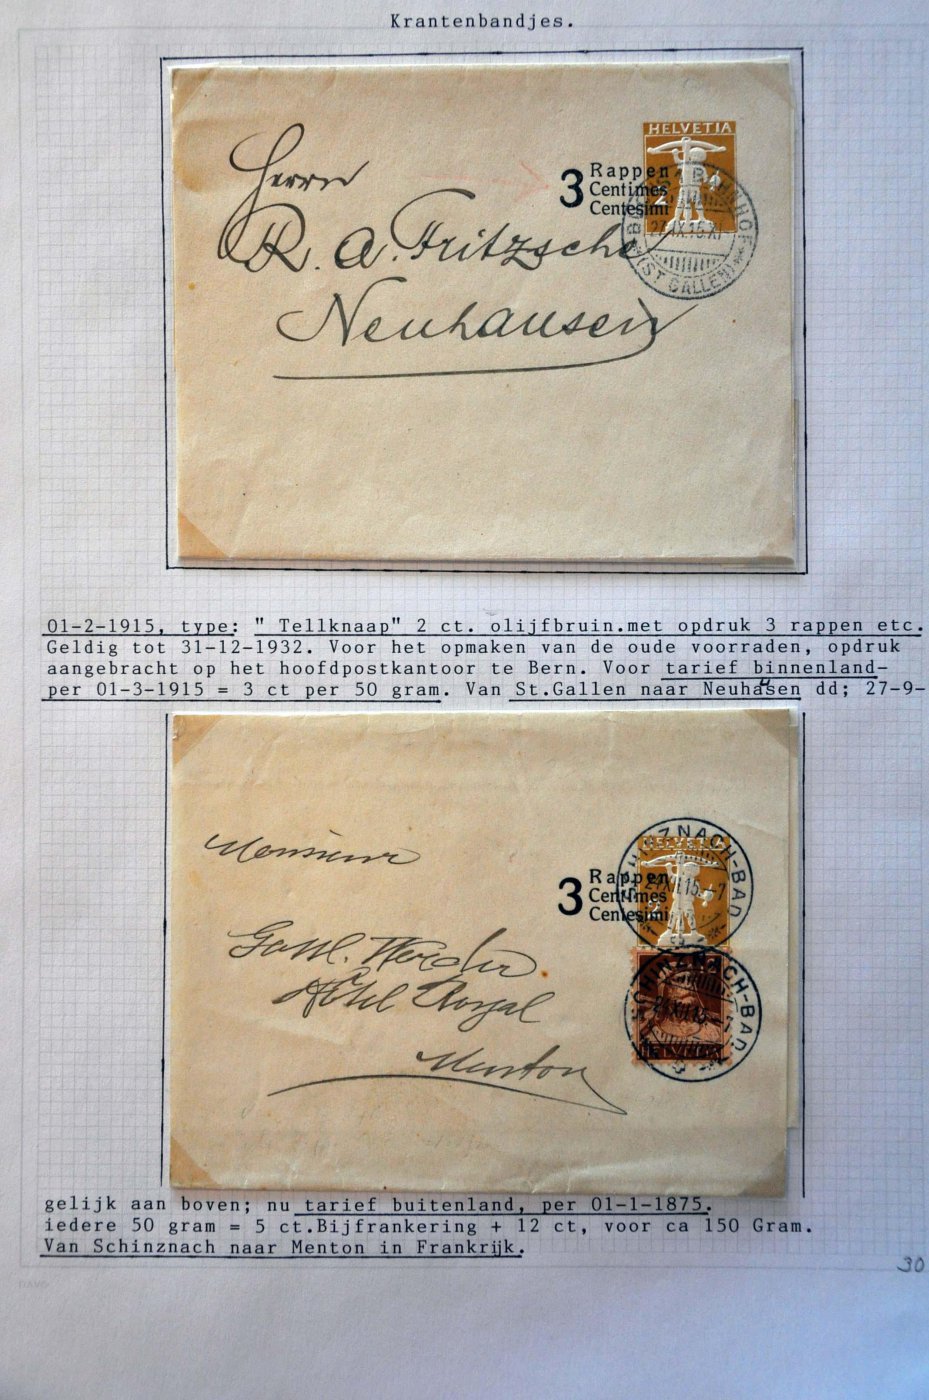 Krantenbandjes.
HELVETIA
3 Rappen
Centimes
Centesimi
2
BUCHS BAHNHOF
27.IX.15.XI
(ST GALLEN)
Herrn
R. A. Fritzsche
Neuhausen
01-2-1915, type: " Tellknaap" 2 ct. olijfbruin.met opdruk 3 rappen etc.
Geldig tot 31-12-1932. Voor het opmaken van de oude voorraden, opdruk
aangebracht op het hoofdpostkantoor te Bern. Voor tarief binnenland-
per 01-3-1915 = 3 ct per 50 gram. Van St.Gallen naar Neuhasen dd; 27-9-
u
HELVETIA
SCHINZNACH-BAD
3 Rappen
Centimes
Centesimi
2
Monsieur
Hôtel Royal
Menton
SCHINZNACH-BAD
HELVETIA
gelijk aan boven; nu tarief buitenland, per 01-1-1875.
iedere 50 gram = 5 ct.Bijfrankering + 12 ct, voor ca 150 Gram.
Van Schinznach naar Menton in Frankrijk.
30